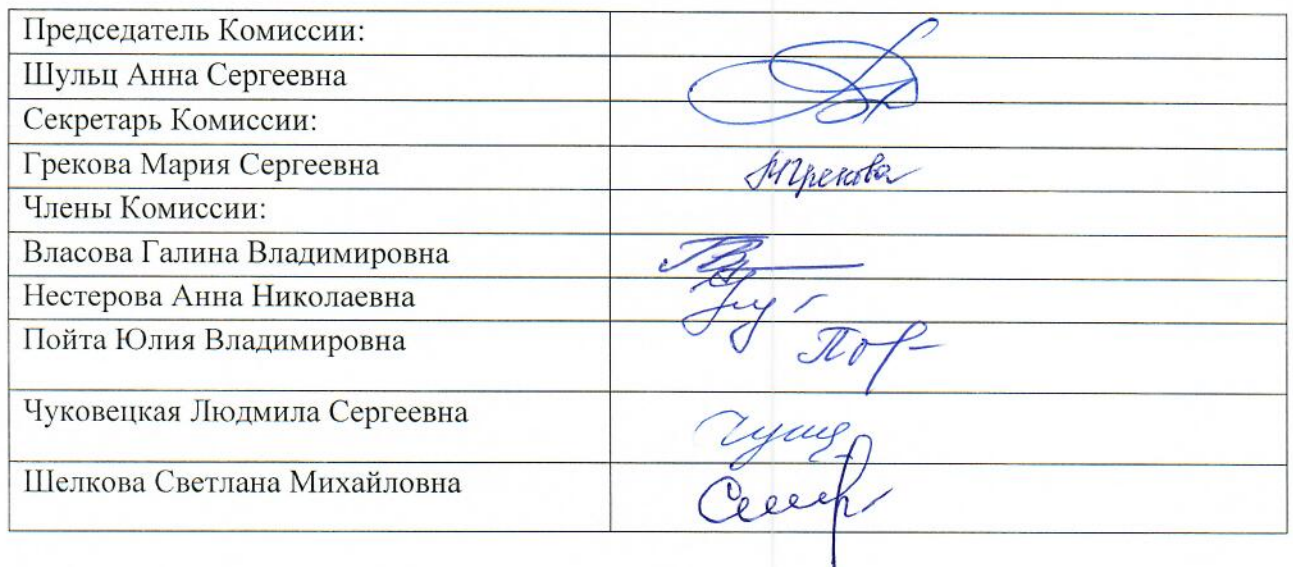 Председатель Комиссии:
Шульц Анна Сергеевна
Секретарь Комиссии:
Грекова Мария Сергеевна
МГрекова
Члены Комиссии:
Власова Галина Владимировна
Нестерова Анна Николаевна
Пойта Юлия Владимировна
Чуковецкая Людмила Сергеевна
Шелкова Светлана Михайловна